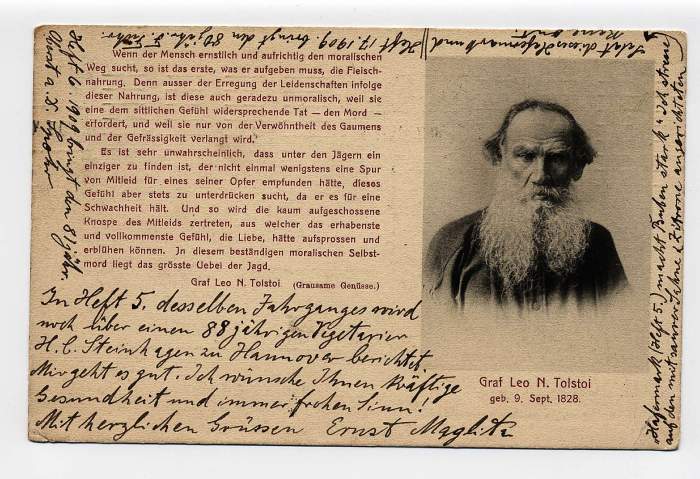 Wenn der Mensch ernstlich und aufrichtig den moralischen
Weg sucht, so ist das erste, was er aufgeben muss, die Fleisch-
nahrung. Denn ausser der Erregung der Leidenschaften infolge
dieser Nahrung, ist diese auch geradezu unmoralisch, weil sie
eine dem sittlichen Gefühl widersprechende Tat — den Mord —
erfordert, und weil sie nur von der Verwöhntheit des Gaumens
und der Gefrässigkeit verlangt wird.
Es ist sehr unwahrscheinlich, dass unter den Jägern ein
einziger zu finden ist, der nicht einmal wenigstens eine Spur
von Mitleid für eines seiner Opfer empfunden hätte, dieses
Gefühl aber stets zu unterdrücken sucht, da er es für eine
Schwachheit hält. Und so wird die kaum aufgeschossene
Knospe des Mitleids zertreten, aus welcher das erhabenste
und vollkommenste Gefühl, die Liebe, hätte aufsprossen und
erblühen können. In diesem beständigen moralischen Selbst-
mord liegt das grösste Uebel der Jagd.
Graf Leo N. Tolstoi (Grausame Genüsse.)
In Heft 5. desselben Jahrganges wird
noch über einen 88 jährigen Vegetarier
H. C. Steinhagen zu Hannover berichtet
Mir geht es gut. Ich wünsche Ihnen kräftige
Gesundheit und immer frohen Sinn!
Mit herzlichen Grüssen Ernst Maglitz
Graf Leo N. Tolstoi
geb. 9. Sept. 1828.
Heft 17. 1909. bringt den 80 jähr.
Heft 6 1909 bringt den 8 jähr.
Hafermark (Heft 5.) macht Buben stark. Ich streue
auf den mit saurer Sahne & Zitrone angerichteten
Salat dieses Hafermark und